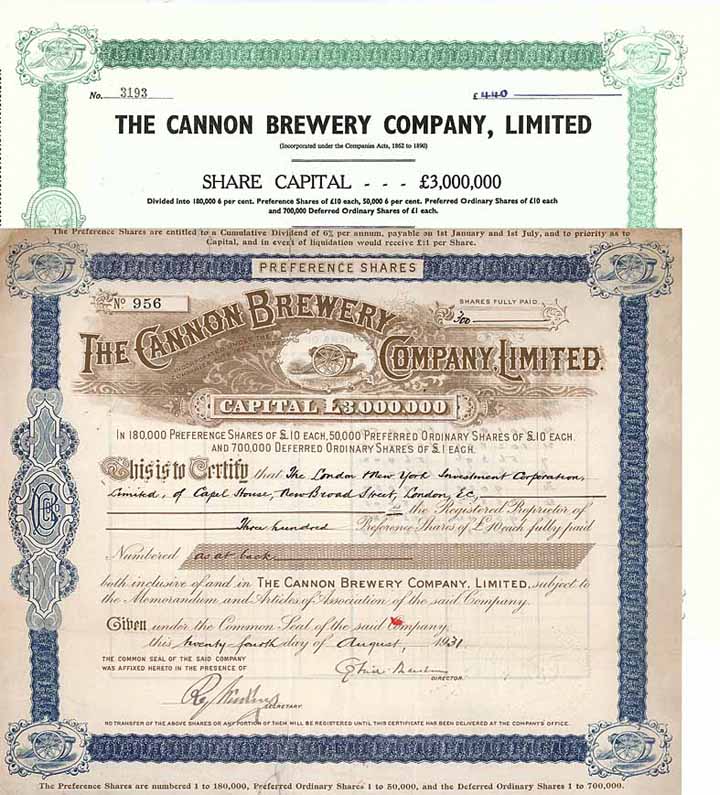 No. 3193 £ 440
THE CANNON BREWERY COMPANY, LIMITED
(Incorporated under the Companies Acts, 1862 to 1890)
SHARE CAPITAL - - - £3,000,000
Divided into 180,000 6 per cent. Preference Shares of £10 each, 50,000 6 per cent. Preferred Ordinary Shares of £10 each
and 700,000 Deferred Ordinary Shares of £1 each.
The Preference Shares are entitled to a Cumulative Dividend of 6% per annum, payable on 1st January and 1st July, and to priority as to
Capital, and in event of liquidation would receive £11 per Share.
PREFERENCE SHARES
No 956
SHARES FULLY PAID.
300
THE CANNON BREWERY
COMPANY, LIMITED.
CAPITAL £3,000,000
IN 180,000 PREFERENCE SHARES OF £10 EACH, 50,000 PREFERRED ORDINARY SHARES OF £10 EACH.
AND 700,000 DEFERRED ORDINARY SHARES OF £1 EACH.
This is to Certify that The London & New York Investment Corporation,
Limited, of Capel House, New Broad Street, London, E.C.,
is the Registered Proprietor of
Three hundred Preference Shares of £10 each fully paid
Numbered as at back
both inclusive of and in THE CANNON BREWERY COMPANY, LIMITED, subject to
the Memorandum and Articles of Association of the said Company.
Given under the Common Seal of the said Company
this twenty fourth day of August, 1931.
THE COMMON SEAL OF THE SAID COMPANY
WAS AFFIXED HERETO IN THE PRESENCE OF
DIRECTOR.
SECRETARY.
NO TRANSFER OF THE ABOVE SHARES OR ANY PORTION OF THEM WILL BE REGISTERED UNTIL THIS CERTIFICATE HAS BEEN DELIVERED AT THE COMPANY'S OFFICE.
The Preference Shares are numbered 1 to 180,000, Preferred Ordinary Shares 1 to 50,000, and the Deferred Ordinary Shares 1 to 700,000.